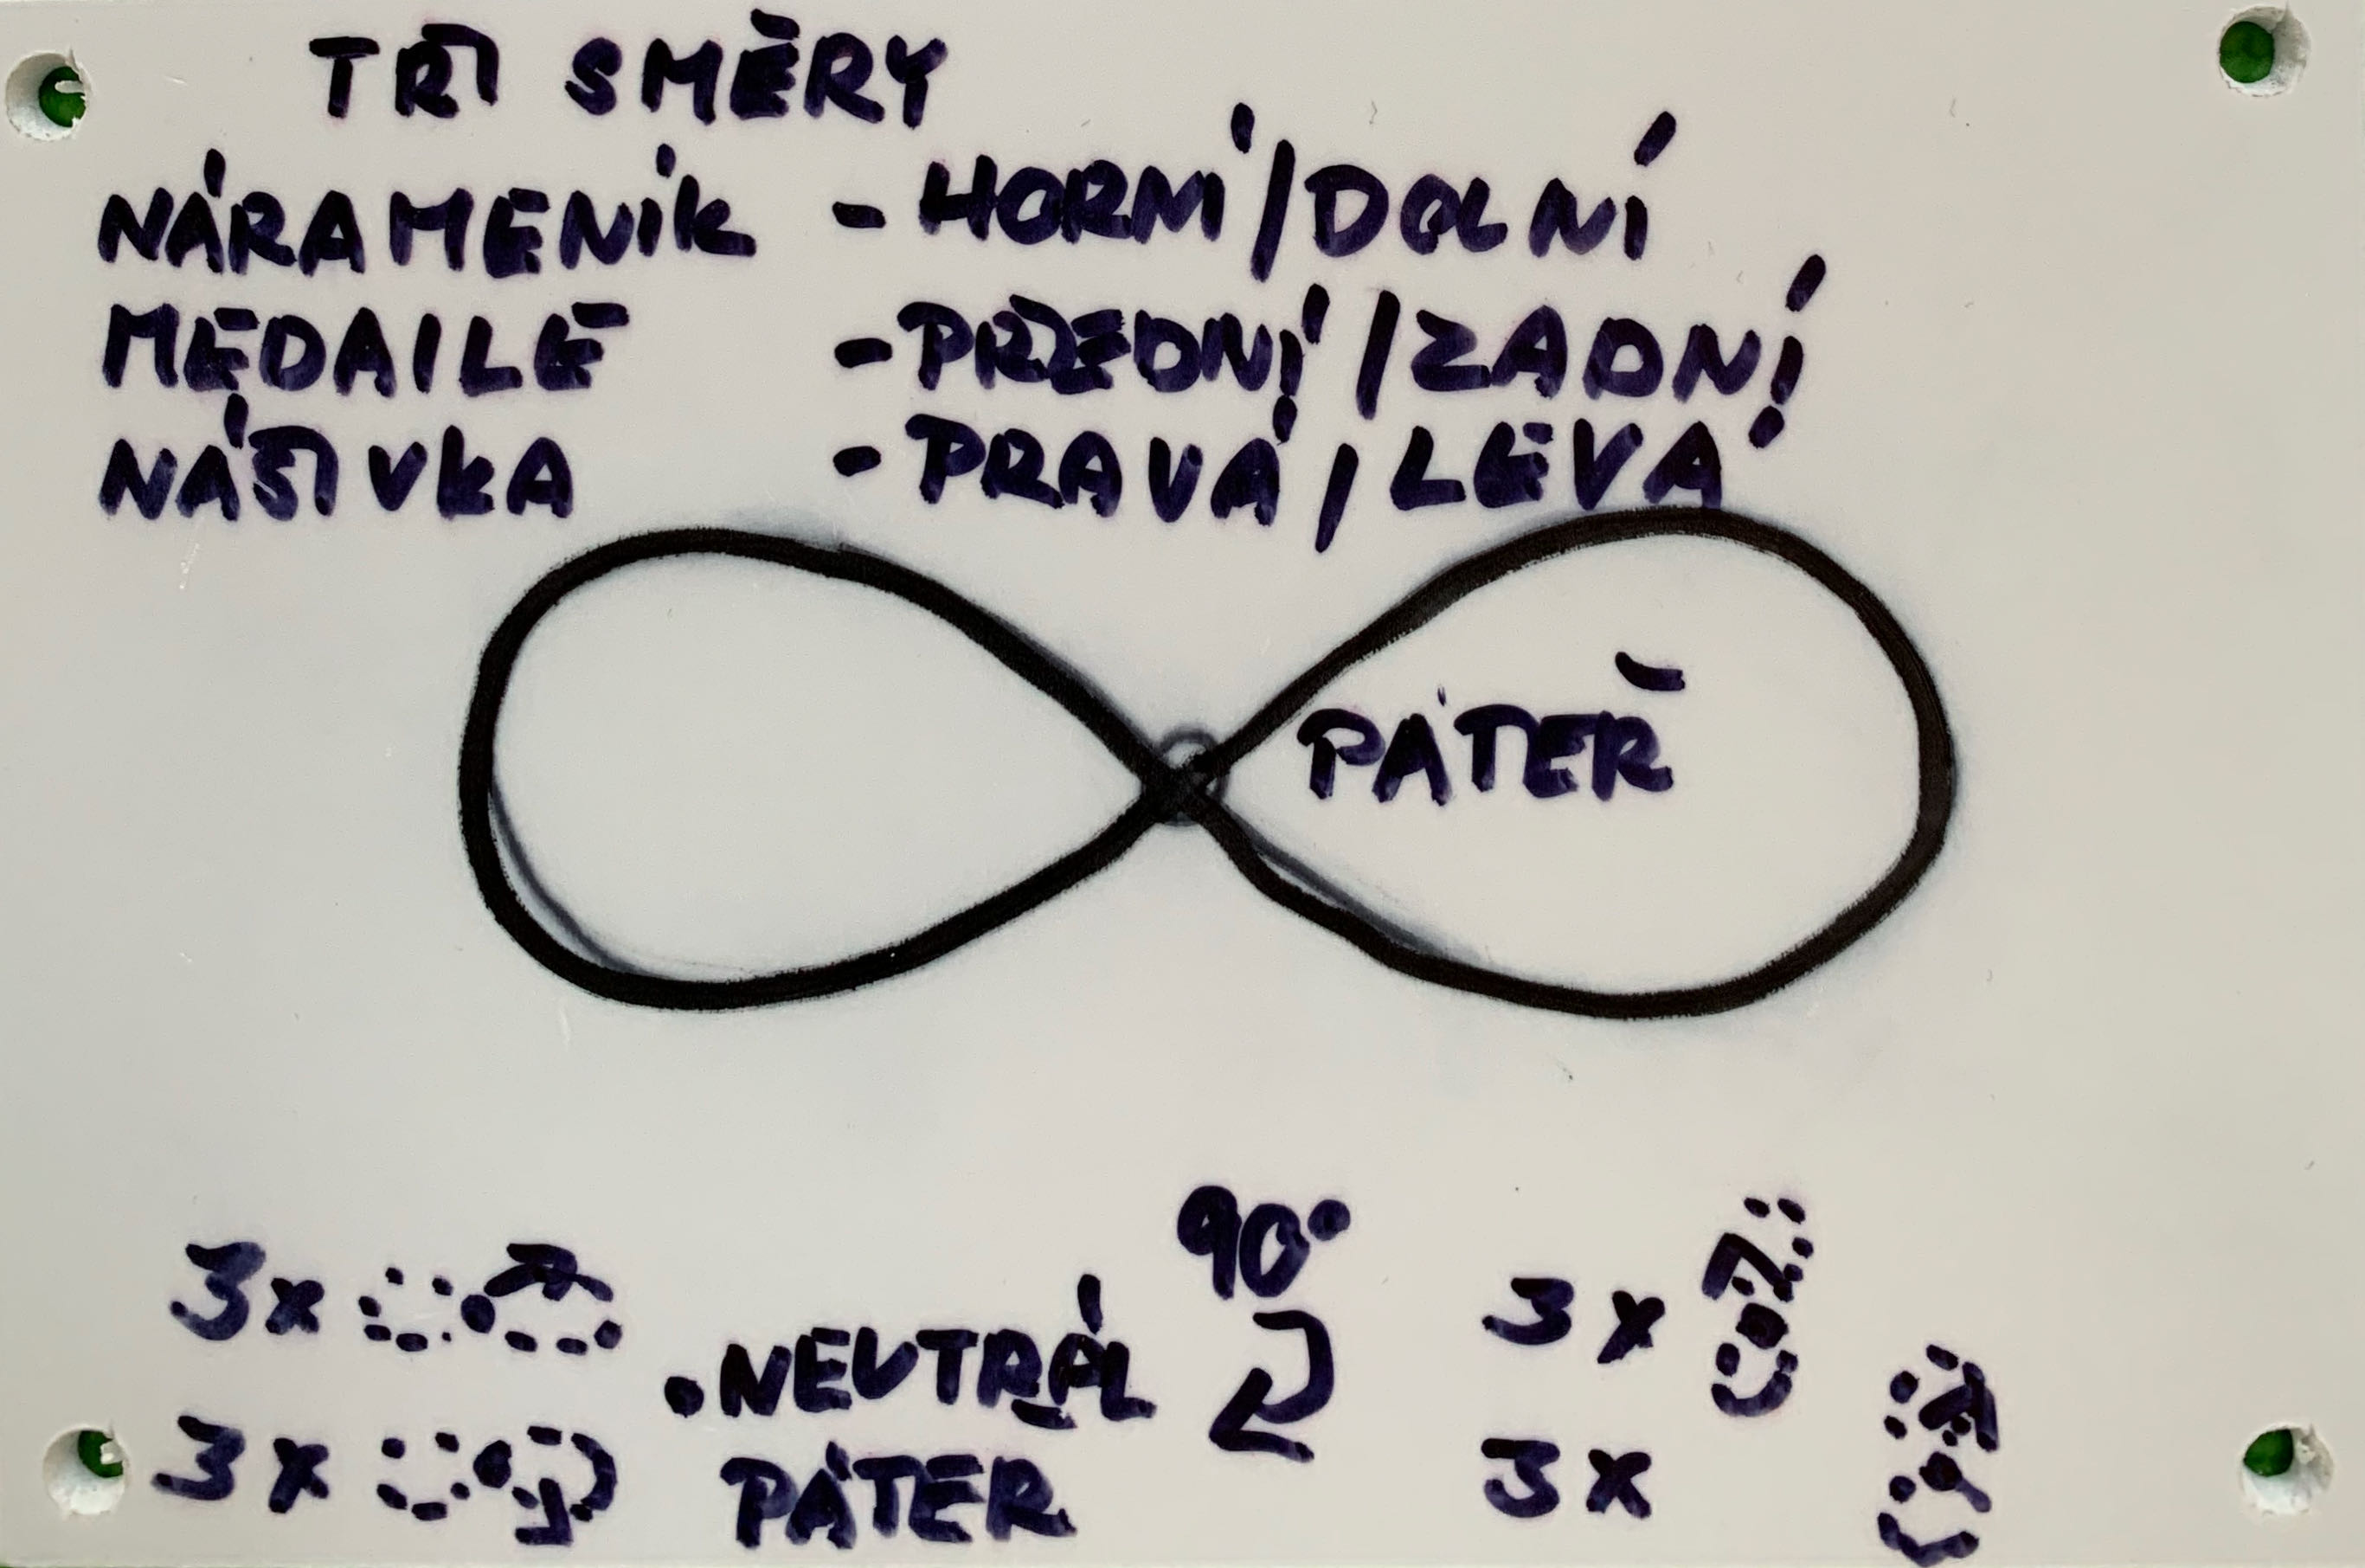 TŘI SMĚRY
NÁRAMENÍK - HORNÍ/DOLNÍ
MEDAILE - PŘEDNÍ/ZADNÍ
NÁŠIVKA - PRAVÁ/LEVÁ
PÁTEŘ
90°
3x
3x
.NEUTRÁL
3x
PÁTEŘ
3x